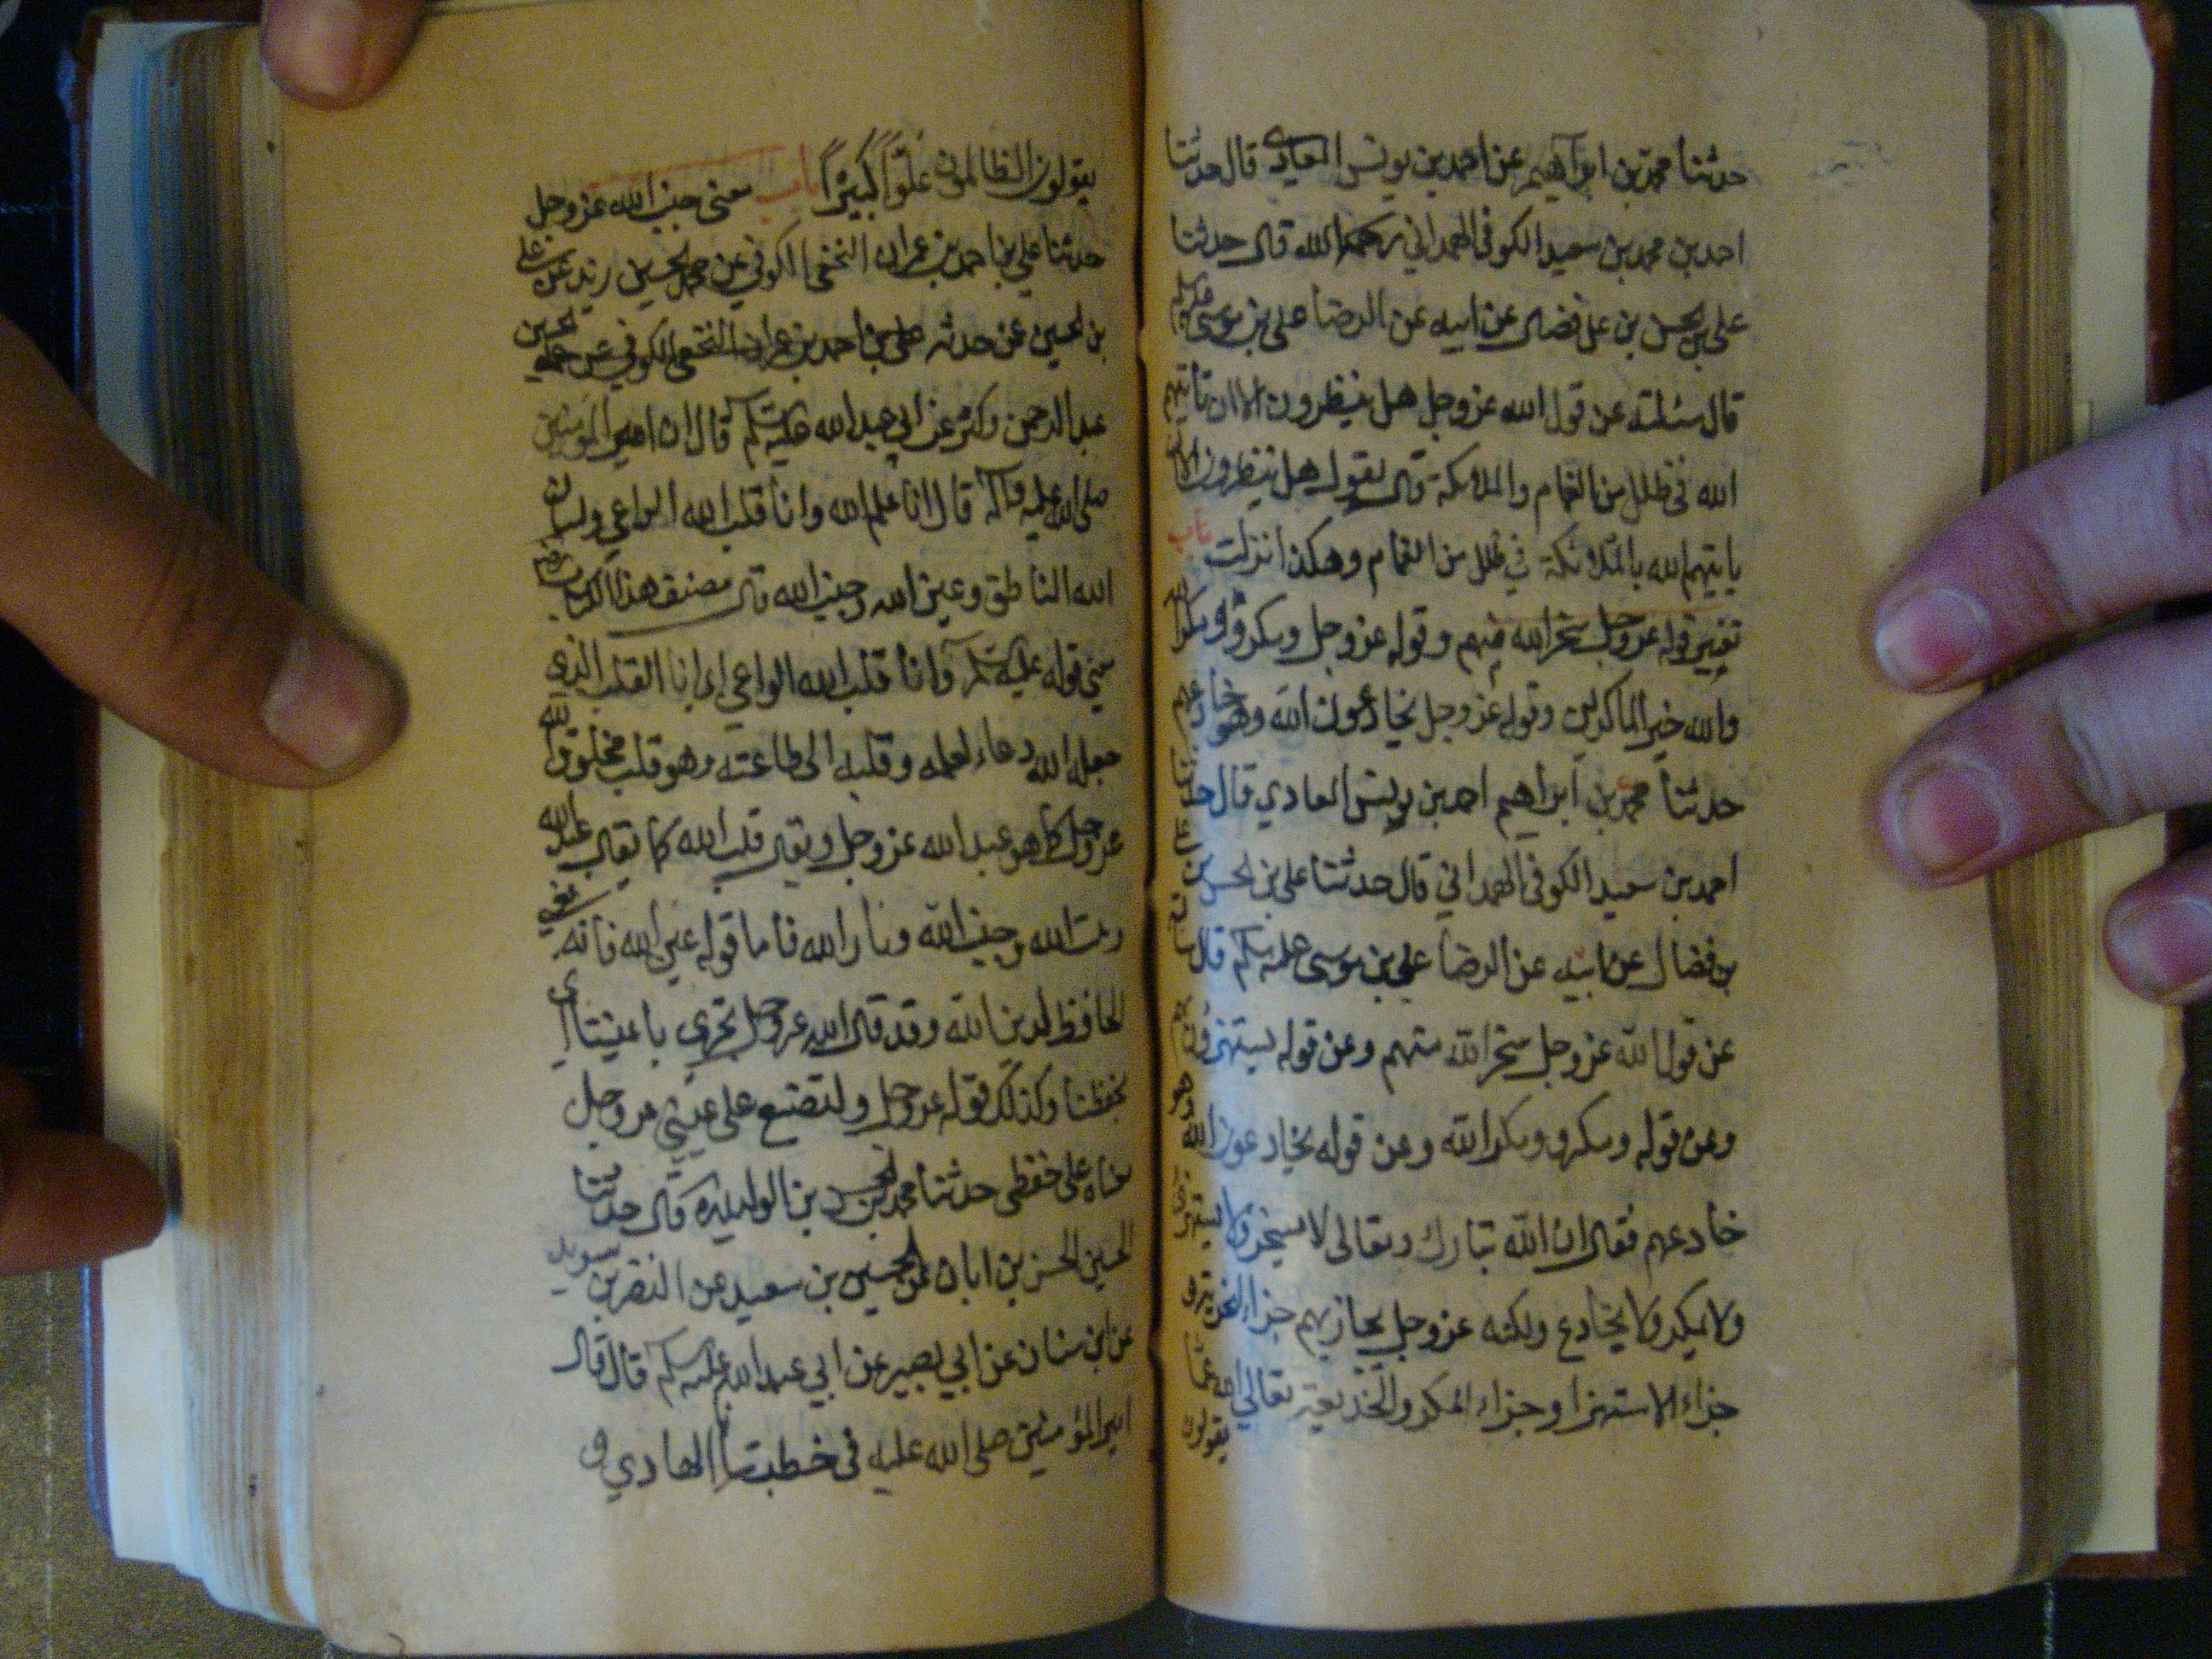 حدثنا محمد بن ابراهيم عن احمد بن يونس المعاذي قال حدثنا
احمد بن محمد بن سعيد الكوفى الهمداني رحمه الله قال حدثنا
على بن الحسن بن على فضال عن ابيه عن الرضا على بن موسى
قال سئلته عن قول الله عز وجل هل ينظرون الا ان تاتيهم
الله فى ظلل من الغمام والملائكة قال يقول هل ينظرون الا ان
ياتيهم الله بالملائكة في ظلل من الغمام وهكذا نزلت باب
تفسير قوله عز وجل سخر الله منهم وقوله عز وجل ومكروا ومكر الله
والله خير الماكرين وقوله عز وجل يخادعون الله وهو خادعهم
حدثنا محمد بن ابراهيم احمد بن يونس المعادي قال حدثنا
احمد بن سعيد الكوفى الهمداني قال حدثنا على بن الحسن بن على
بن فضال عن ابيه عن الرضا علي بن موسى عليه السلم قال سالته
عن قول الله عز وجل سخر الله منهم وعن قوله يستهزؤن بهم
وعن قوله ومكروا ومكر الله وعن قوله يخادعون الله وهو
خادعهم فقال ان الله تبارك وتعالى لا يسخر ولا يستهزئ
ولا يمكر ولا يخادع ولكنه عز وجل يجازيهم جزاء السخرية و
جزاء الاستهزا وجزاء المكر والخديعة تعالى الله عما
يقولون
يقولون الظالمون علوا كبيرا باب معنى جنب الله عز وجل
حدثنا علي بن احمد بن عمران النخعى الكوفي عن محمد الحسين
بن الحسين عن حدثه على بن احمد بن عمران النخعي الكوفي عن
عبد الرحمن وكثير عن ابي عبد الله عليه السلم قال ان امير المؤمنين
صلى الله عليه وآله قال انا علم الله وانا قلب الله الواعي ولسان
الله الناطق وعين الله وجنب الله قال مصنف هذا الكتاب
معني قوله عليه السلم وانا قلب الله الواعي اى انا القلب الذي
جعله الله دعاء لعلمه وقلبه الى طاعته وهو قلب مخلوق لله
عز وجل كما هو عبد الله عز وجل ويقال قلب الله كما يقال عبد الله
وبيت الله وجنب الله ونار الله فاما قوله عين الله فانه يعني
الحافظ لدين الله وقد قال الله عز وجل تجرى باعيننا اى
بحفظنا وكذلك قوله عز وجل ولتصنع على عيني عز وجل
معناه على حفظى حدثنا محمد بن الحسن بن الوليد ره قال حدثنا
الحسين الحسن بن ابان عن الحسين بن سعيد عن النضر بن سويد
عن ابن سنان عن ابي بصير عن ابي عبد الله عليه السلم قال قال
امير المؤمنين صلى الله عليه فى خطبته انا الهادي و